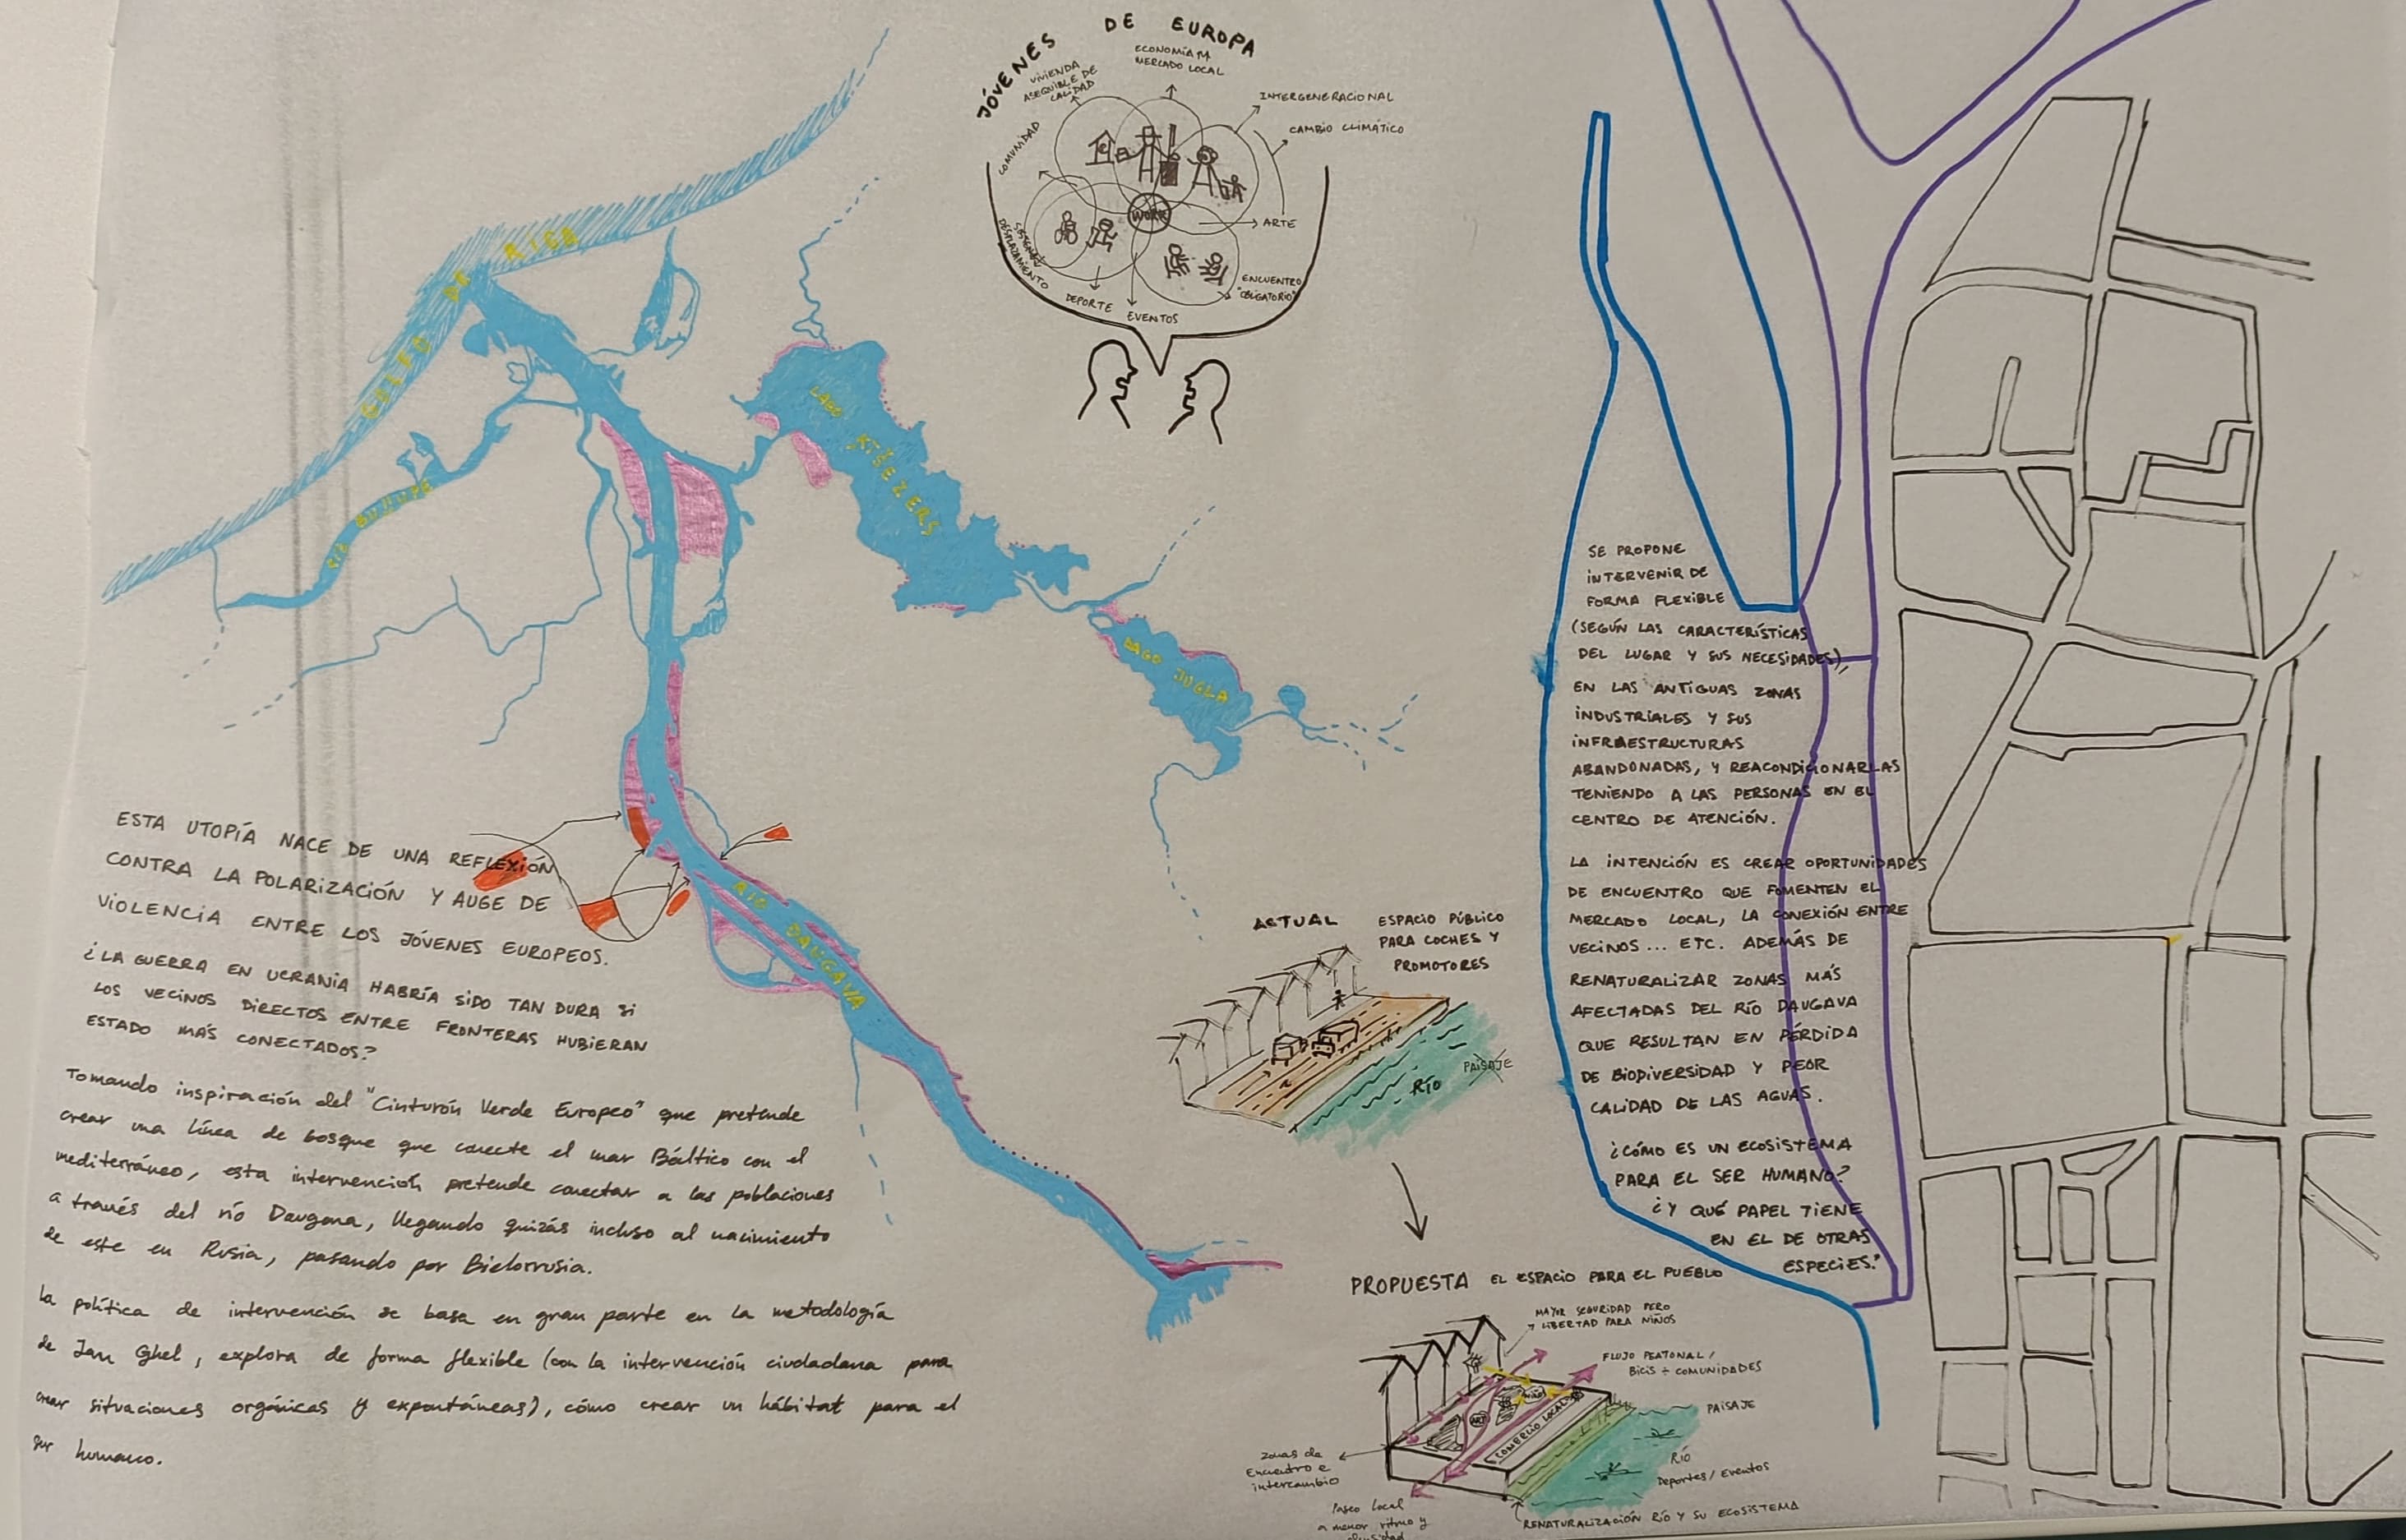 JÓVENES DE EUROPA
VIVIENDA
ASEQUIBLE DE
CALIDAD
ECONOMÍA
MERCADO LOCAL
INTERGENERACIONAL
CAMBIO CLIMÁTICO
COMUNIDAD
WORK
ARTE
DESPLAZAMIENTO
DEPORTE
EVENTOS
ENCUENTRO
"OBLIGATORIO"
GOLFO DE RIGA
RÍO BULLUPE
LAGO ĶĪŠEZERS
LAGO JUGLA
RÍO DAUGAVA
ESTA UTOPÍA NACE DE UNA REFLEXIÓN
CONTRA LA POLARIZACIÓN Y AUGE DE
VIOLENCIA ENTRE LOS JÓVENES EUROPEOS.
¿LA GUERRA EN UCRANIA HABRÍA SIDO TAN DURA SI
LOS VECINOS DIRECTOS ENTRE FRONTERAS HUBIERAN
ESTADO MÁS CONECTADOS?
Tomando inspiración del "Cinturón Verde Europeo" que pretende
crear una línea de bosque que conecte el mar Báltico con el
mediterráneo, esta intervención pretende conectar a las poblaciones
a través del río Daugava, llegando quizás incluso al nacimiento
de este en Rusia, pasando por Bielorrusia.
La política de intervención se basa en gran parte en la metodología
de Jan Ghel, explora de forma flexible (con la intervención ciudadana para
crear situaciones orgánicas y expontáneas), cómo crear un hábitat para el
ser humano.
ACTUAL
ESPACIO PÚBLICO
PARA COCHES Y
PROMOTORES
RÍO
PAISAJE
PROPUESTA EL ESPACIO PARA EL PUEBLO
MAYOR SEGURIDAD PERO
LIBERTAD PARA NIÑOS
FLUJO PEATONAL /
BICIS ÷ COMUNIDADES
PAISAJE
COMERCIO LOCAL
RÍO
Deportes / Eventos
zonas de
Encuentro e
intercambio
Paseo local
a menor ritmo y
RENATURALIZACIÓN RÍO Y SU ECOSISTEMA
SE PROPONE
INTERVENIR DE
FORMA FLEXIBLE
(SEGÚN LAS CARACTERÍSTICAS
DEL LUGAR Y SUS NECESIDADES),
EN LAS ANTIGUAS ZONAS
INDUSTRIALES Y SUS
INFRAESTRUCTURAS
ABANDONADAS, Y REACONDICIONARLAS
TENIENDO A LAS PERSONAS EN EL
CENTRO DE ATENCIÓN.
LA INTENCIÓN ES CREAR OPORTUNIDADES
DE ENCUENTRO QUE FOMENTEN EL
MERCADO LOCAL, LA CONEXIÓN ENTRE
VECINOS... ETC. ADEMÁS DE
RENATURALIZAR ZONAS MÁS
AFECTADAS DEL RÍO DAUGAVA
QUE RESULTAN EN PÉRDIDA
DE BIODIVERSIDAD Y PEOR
CALIDAD DE LAS AGUAS.
¿CÓMO ES UN ECOSISTEMA
PARA EL SER HUMANO?
¿Y QUÉ PAPEL TIENE
EN EL DE OTRAS
ESPECIES."